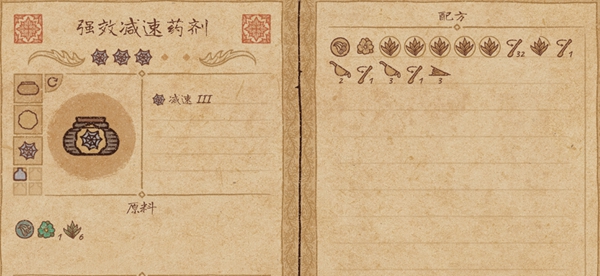 强效减速药剂
减速 III
原料
1 6
配方
32 1
2 1 3 1 3